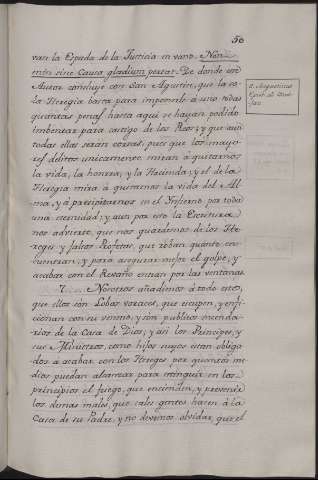 50
van la Espada de la Justicia en vano. Non
enim sine causa gladium portat. De donde este
Autor concluye con San Agustin, que la so-
la Heregia basta para imponerle á uno todas
quantas penas hasta aqui se hayan podido
imbentar para castigo de los Reos; y que aun
todas ellas serán cortas; pues que los mayo-
res delitos unicamente miran á quitarnos
la vida, la honrra, y la Hacienda; y el de la
Heregia mira á quitarnos la vida del Al-
ma, y á precipitarnos en el Infierno por toda
una eternidad; y aun por esto la Escritura
nos advierte, que nos guardemos de los He-
reges y falsos Profetas, que roban quanto en-
cuentran; y para asegurar mejor el golpe, y
acabar con el Rebaño entran por las ventanas
7. Nosotros añadimos á todo esto,
que ellos son Lobos voraces, que escupen, y enfi-
cionan con su veneno; y son publicos incendia-
rios de la Casa de Dios; y asi los Principes, y
sus Ministros, como hijos suyos estan obliga-
dos á acabar con los Hereges por quantos me-
dios puedan alcanzar para extinguir en los
principios el fuego, que encienden, y prevenir
los demas males, que tales gentes hacen á la
Casa de su Padre, y no devemos olvidar, que el
S. Augustinus
Epist. ad